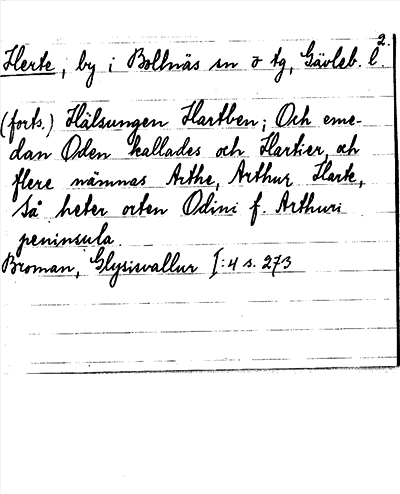 2.
Herte, by i Bollnäs sn o tg, Gävleb. l.
(forts.) Hälsungen Hartben; Och eme-
dan Oden kallades och Hartier, och
flere nämnas Arthe, Arthur Harte,
så heter orten Odini f. Arthuri
peninsula.
Broman, Glysisvallur I:4 s. 273